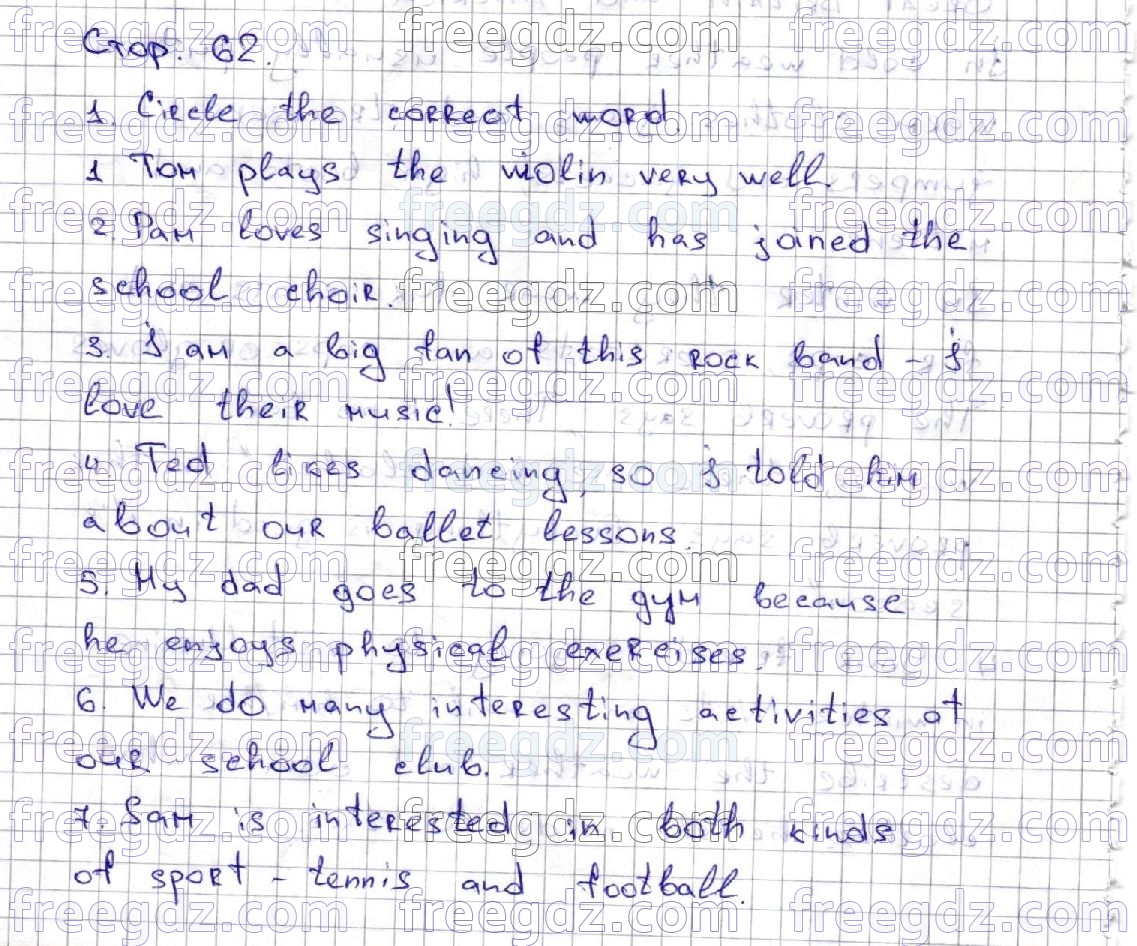 Стор. 62.
1. Circle the correct word.
1 Tom plays the violin very well.
2. Pam loves singing and has joined the
school choir.
3. I am a big fan of this rock band - I
love their music!
4. Ted likes dancing, so I told him
about our ballet lessons.
5. My dad goes to the gym because
he enjoys physical exercises.
6. We do many interesting activities at
our school club.
7. Sam is interested in both kinds
of sport - tennis and football.
freegdz.com